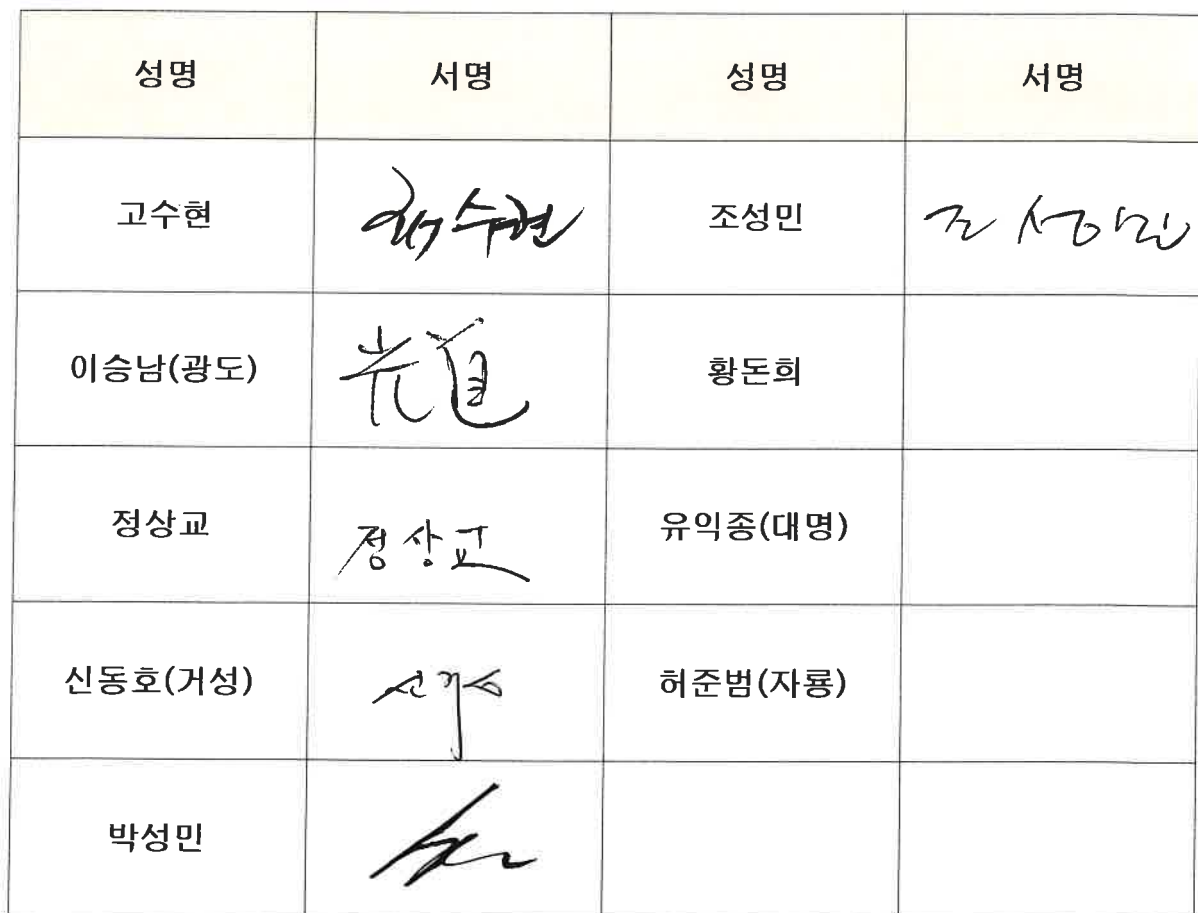 성명 서명 성명 서명
고수현 고수현 조성민 조성민
이승남(광도) 光道 황돈희
정상교 정상교 유익종(대명)
신동호(거성) 허준범(자룡)
박성민